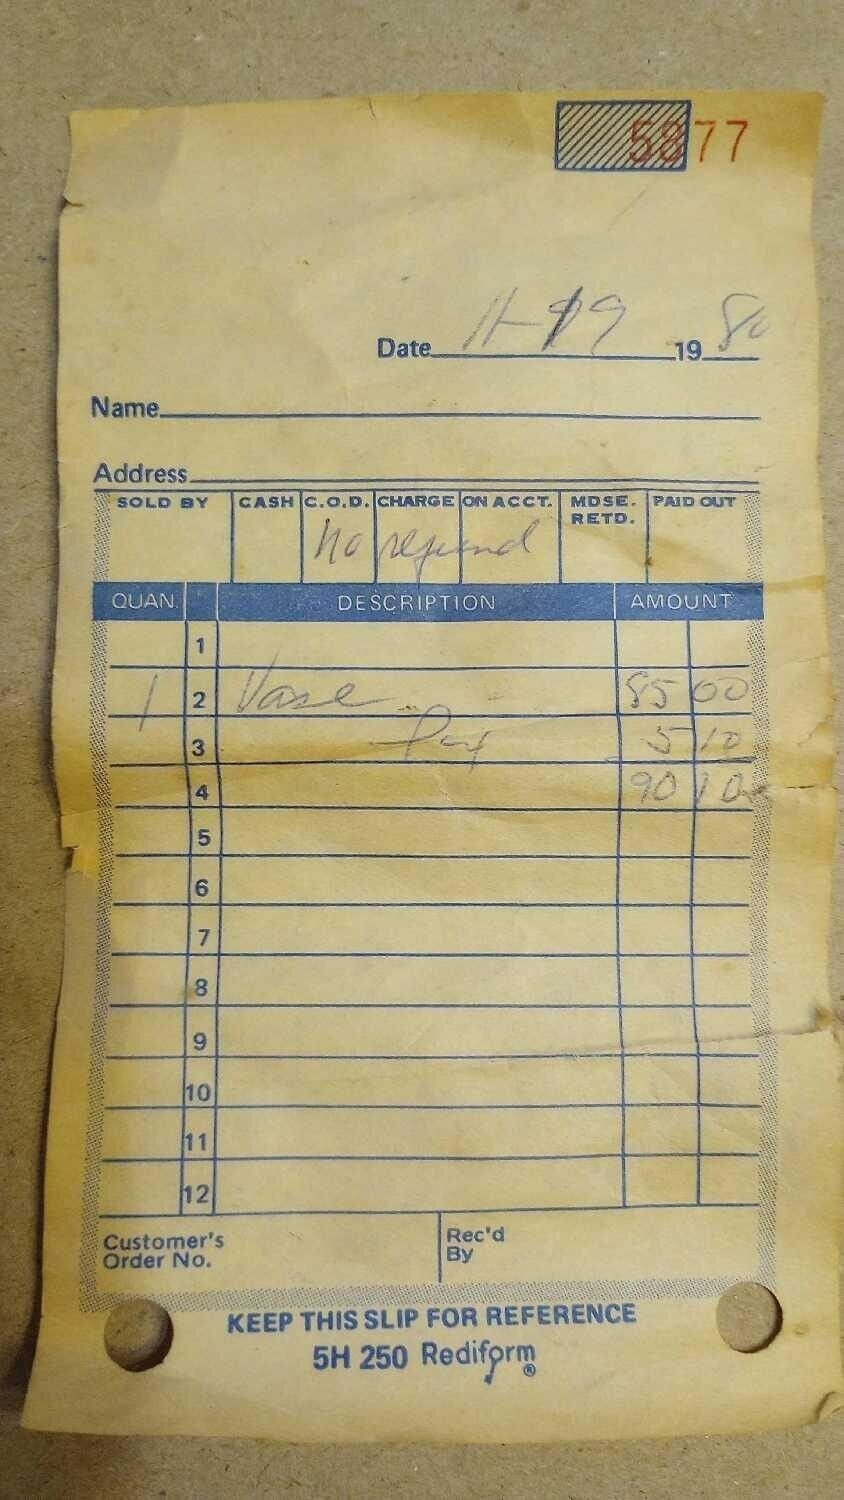 5877
Date 11-19 19 80
Name
Address
SOLD BY CASH C.O.D. CHARGE ON ACCT. MDSE. RETD. PAID OUT
no refund
QUAN. DESCRIPTION AMOUNT
1
1 2 Vase 85 00
3 5 10
4 90 10
5
6
7
8
9
10
11
12
Customer's
Order No.
Rec'd
By
KEEP THIS SLIP FOR REFERENCE
5H 250 Rediform®